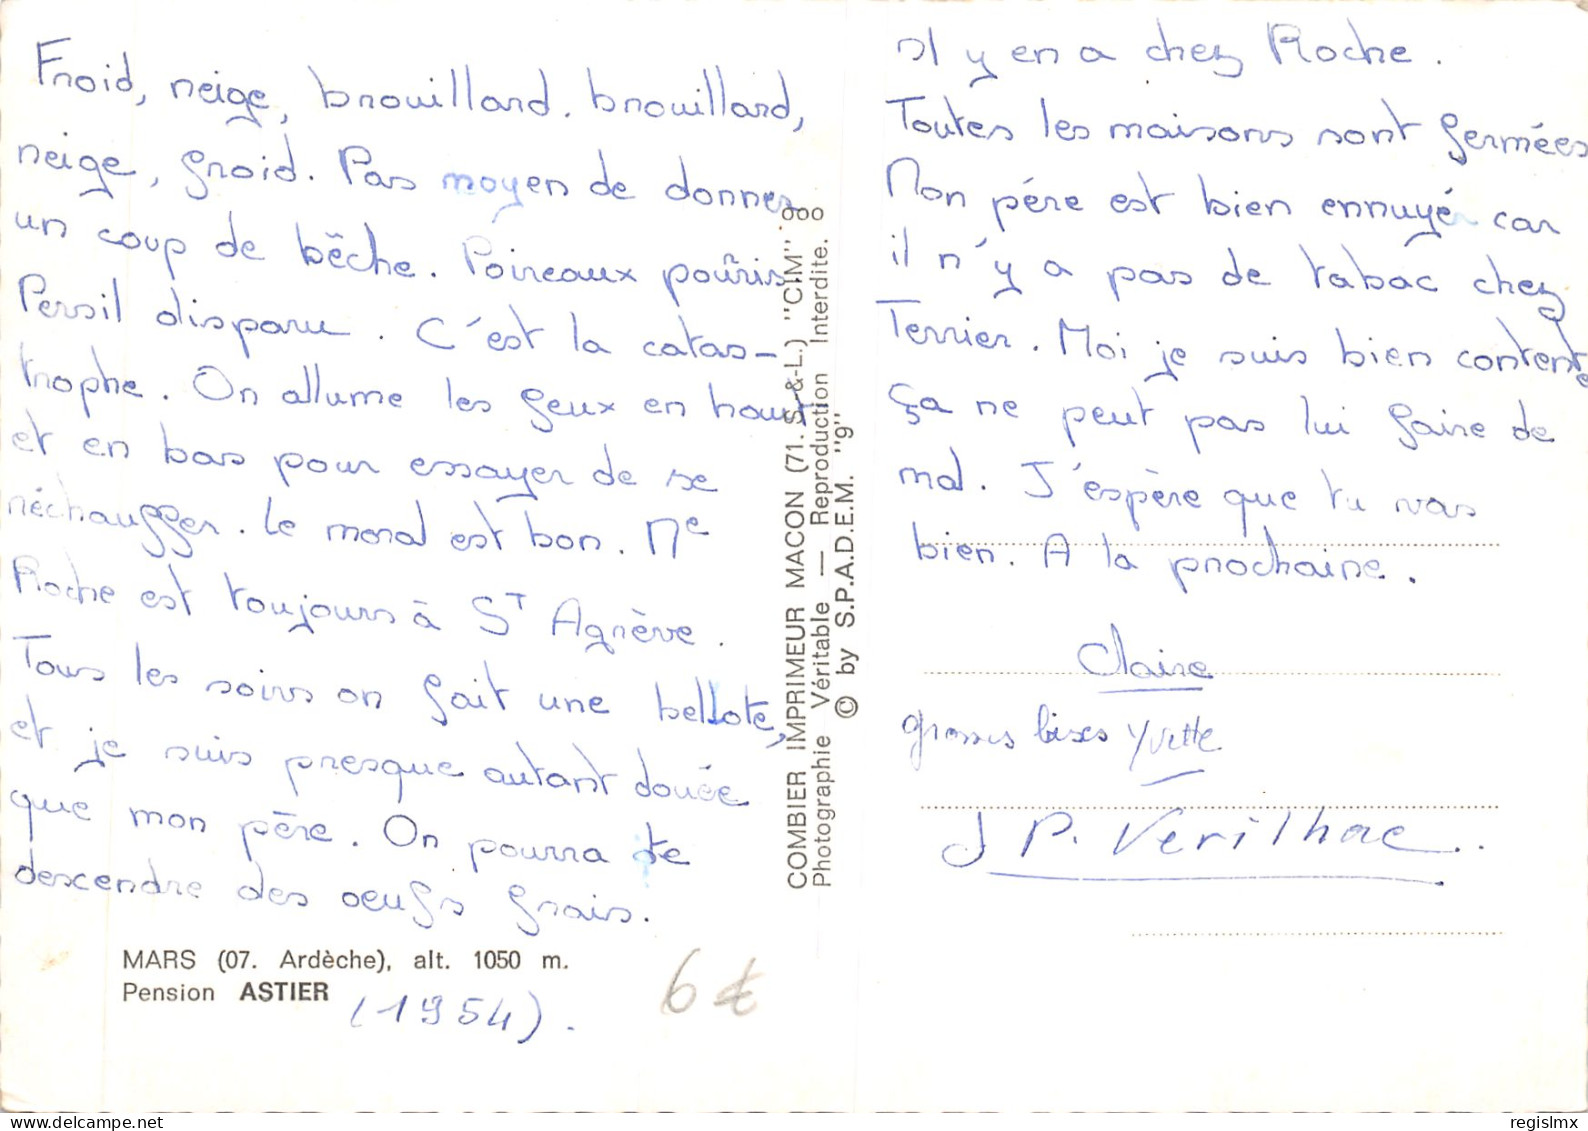 Froid, neige, brouillard. brouillard,
neige, froid. Pas moyen de donner
un coup de bêche. Poireaux poûris
Persil disparu. C'est la catas-
trophe. On allume les feux en haut
et en bas pour essayer de se
réchauffer. Le moral est bon. Me
Roche est toujours à ST Agrève.
Tous les soirs on fait une bellote,
et je suis presque autant douée
que mon père. On pourra te
descendre des oeufs frais.
MARS (07. Ardèche), alt. 1050 m.
Pension ASTIER
(1954).
6 €
COMBIER IMPRIMEUR MACON (71. S.-&-L.) "CIM"
Photographie Véritable — Reproduction Interdite.
© by S.P.A.D.E.M. "9"
Il y en a chez Roche.
Toutes les maisons sont fermées
Mon pére est bien ennuyé car
il n'y a pas de tabac chez
Terrier. Moi je suis bien contente
ça ne peut pas lui faire de
mal. J'espère que tu vas
bien. A la prochaine.
Claire
grosses bises Yvette
J P. Verilhac..
regislmx